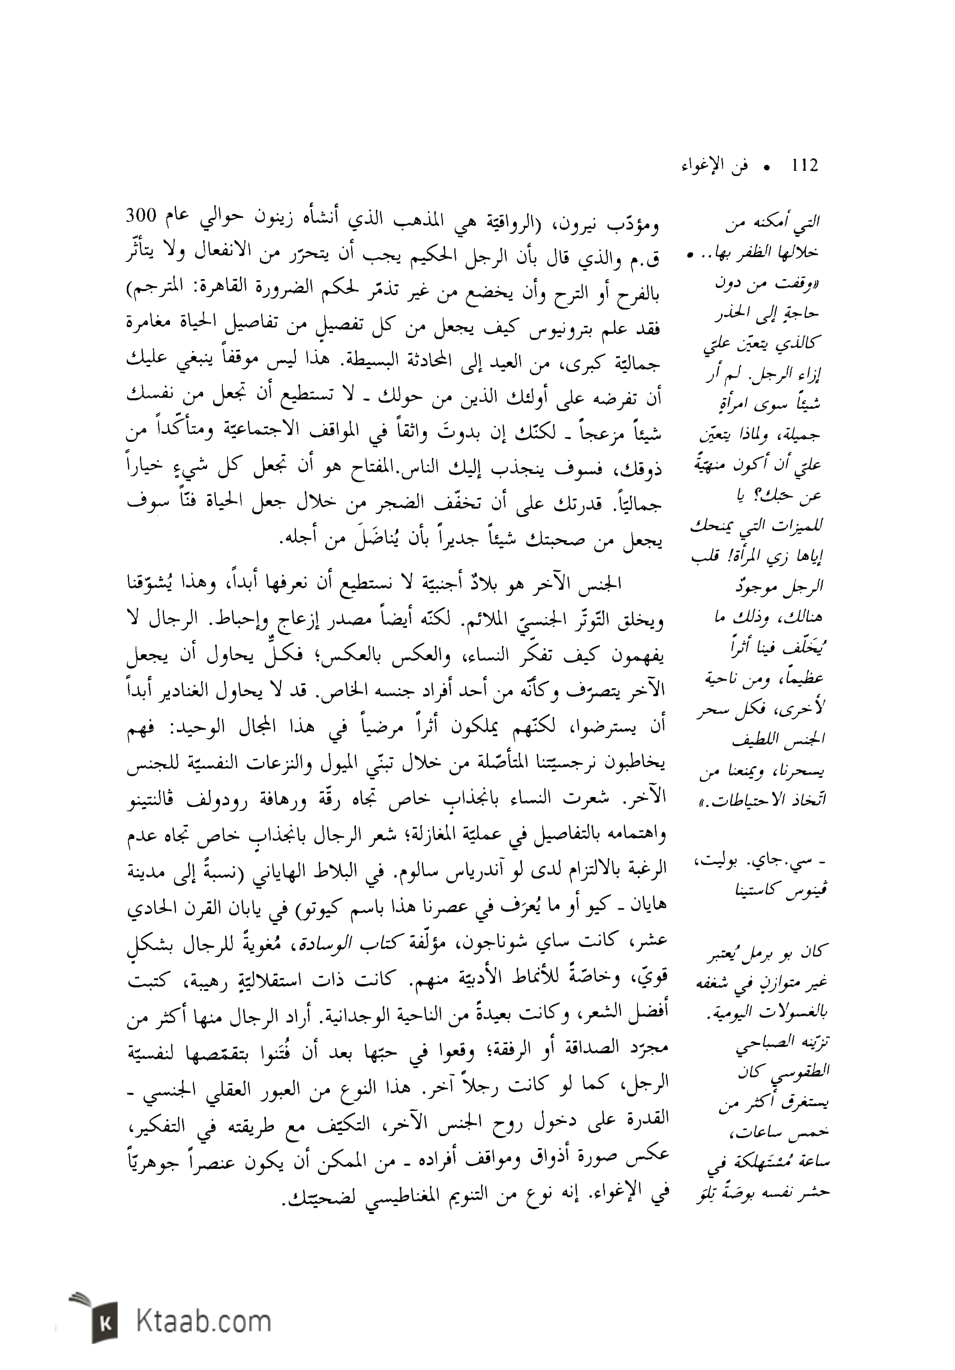 112 • فن الإغواء
ومؤدّب نيرون، (الرواقيّة هي المذهب الذي أنشأه زينون حوالي عام 300
ق.م والذي قال بأن الرجل الحكيم يجب أن يتحرّر من الانفعال ولا يتأثّر
بالفرح أو الترح وأن يخضع من غير تذمّر لحكم الضرورة القاهرة: المترجم)
فقد علم بترونيوس كيف يجعل من كل تفصيلٍ من تفاصيل الحياة مغامرة
جماليّة كبرى، من العيد إلى المحادثة البسيطة. هذا ليس موقفاً ينبغي عليك
أن تفرضه على أولئك الذين من حولك ـ لا تستطيع أن تجعل من نفسك
شيئاً مزعجاً ـ لكنّك إن بدوتَ واثقاً في المواقف الاجتماعيّة ومتأكّداً من
ذوقك، فسوف ينجذب إليك الناس.المفتاح هو أن تجعل كل شيءٍ خياراً
جماليّاً. قدرتك على أن تخفّف الضجر من خلال جعل الحياة فنّاً سوف
يجعل من صحبتك شيئاً جديراً بأن يُناضَلَ من أجله.
الجنس الآخر هو بلادٌ أجنبيّة لا نستطيع أن نعرفها أبداً، وهذا يُشوّقنا
ويخلق التّوتّر الجنسيّ الملائم. لكنّه أيضاً مصدر إزعاج وإحباط. الرجال لا
يفهمون كيف تفكّر النساء، والعكس بالعكس؛ فكلٌّ يحاول أن يجعل
الآخر يتصرّف وكأنّه من أحد أفراد جنسه الخاص. قد لا يحاول الغنادير أبداً
أن يسترضوا، لكنّهم يملكون أثراً مرضياً في هذا المجال الوحيد: فهم
يخاطبون نرجسيّتنا المتأصّلة من خلال تبنّي الميول والنزعات النفسيّة للجنس
الآخر. شعرت النساء بانجذابٍ خاص تجاه رقّة ورهافة رودولف ڤالنتينو
واهتمامه بالتفاصيل في عمليّة المغازلة؛ شعر الرجال بانجذابٍ خاص تجاه عدم
الرغبة بالالتزام لدى لو آندرياس سالوم. في البلاط الهاياني (نسبةً إلى مدينة
هايان ـ كيو أو ما يُعرَف في عصرنا هذا باسم كيوتو) في يابان القرن الحادي
عشر، كانت ساي شوناجون، مؤلّفة كتاب الوسادة، مُغويةً للرجال بشكلٍ
قويّ، وخاصّةً للأنماط الأدبيّة منهم. كانت ذات استقلاليّةٍ رهيبة، كتبت
أفضل الشعر، وكانت بعيدةً من الناحية الوجدانية. أراد الرجال منها أكثر من
مجرّد الصداقة أو الرفقة؛ وقعوا في حبّها بعد أن فُتَنوا بتقمّصها لنفسيّة
الرجل، كما لو كانت رجلاً آخر. هذا النوع من العبور العقلي الجنسي ـ
القدرة على دخول روح الجنس الآخر، التكيّف مع طريقته في التفكير،
عكس صورة أذواق ومواقف أفراده ـ من الممكن أن يكون عنصراً جوهريّاً
في الإغواء. إنه نوع من التنويم المغناطيسي لضحيّتك.
التي أمكنه من
خلالها الظفر بها.. •
«وقفت من دون
حاجةٍ إلى الحذر
كالذي يتعيّن عليّ
إزاء الرجل. لم أر
شيئاً سوى امرأةٍ
جميلة، ولماذا يتعيّن
عليّ أن أكون منهيّةً
عن حبّك؟ يا
للميزات التي يمنحك
إياها زي المرأة! قلب
الرجل موجودٌ
هنالك، وذلك ما
يُخَلّف فينا أثراً
عظيماً، ومن ناحية
لأخرى، فكل سحر
الجنس اللطيف
يسحرنا، ويمنعنا من
اتّخاذ الاحتياطات.»
ـ سي.جاي. بوليت،
ڤينوس كاستينا
كان بو برمل يُعتبر
غير متوازنٍ في شغفه
بالغسولات اليومية.
تزيّنه الصباحي
الطقوسي كان
يستغرق أكثر من
خمس ساعات،
ساعة مُسْتَهلكة في
حشر نفسه بوصَةً تِلوَ
Ktaab.com